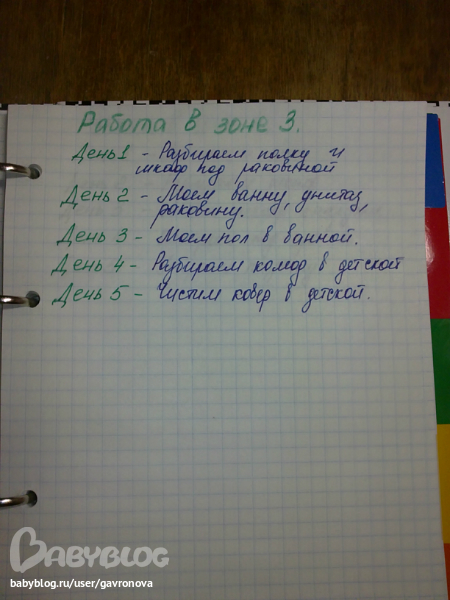 Работа в зоне 3.
День 1 - Разбираем полку и
шкаф под раковиной
День 2 - Моем ванну, унитаз,
раковину.
День 3 - Моем пол в ванной.
День 4 - Разбираем комод в детской
День 5 - Чистим ковёр в детской.
BABYBLOG
babyblog.ru/user/gavronova